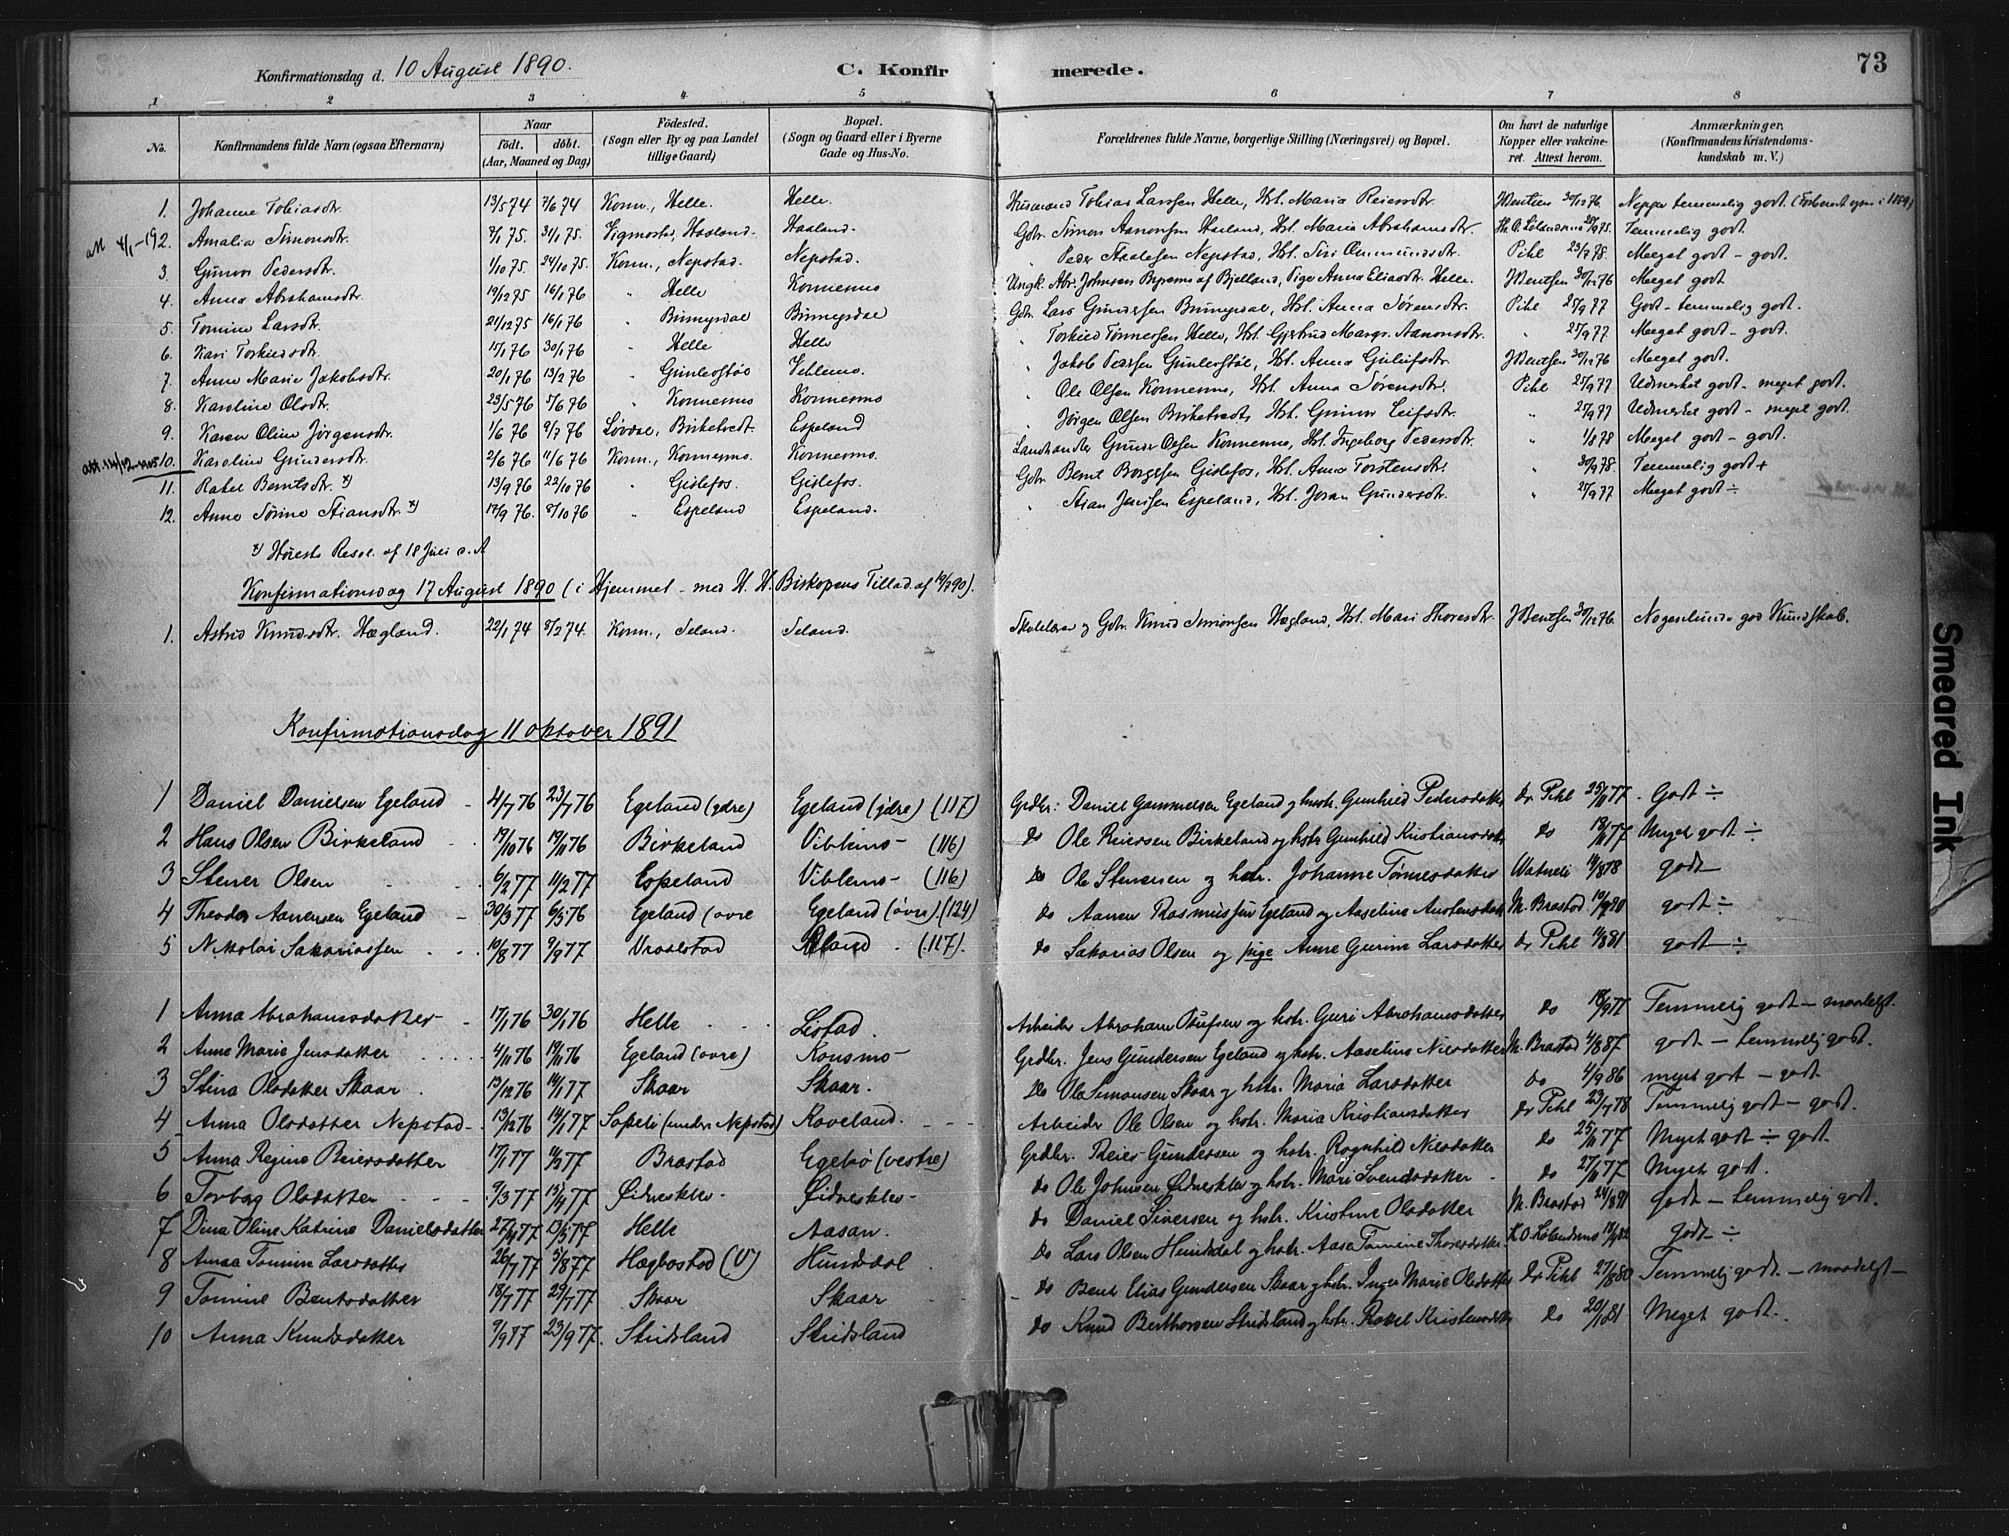 Konfirmationsdag d. 10 August 1890. C. Konfirmerede. 73
1 2 3 4 5 6 7 8
No. Konfirmandens fulde Navn (ogsaa Efternavn) Naar født. døbt. (Aar, Maaned og Dag) Fødested. (Sogn eller By og paa Landet tillige Gaard) Bopæl. (Sogn og Gaard eller i Byerne Gade og Hus-No. Forældrenes fulde Navne, borgerlige Stilling (Næringsvei) og Bopæl. Om havt de naturlige Kopper eller vakcineret. Attest herom. Anmærkninger, (Konfirmandens Kristendomskundskab m. V.)
1. Johanne Tobiasdtr. 13/5 74 7/6 74 Konn., Helle. Helle. Husmand Tobias Larssen Helle, Hst. Maria Reiersdtr. JBentsen 30/12 76. Neppe temmelig godt.
2. Amalia Simonsdtr. 8/1 75. 31/1 75. Haaland. Haaland. Gbr. Simon Aanonsen Haaland, Hst. Maria Abrahamsdtr. Temmelig godt.
3. Gunvor Pedersdtr. 1/10 75. 24/10 75. Konn., Nepstad. Nepstad. " Peder Staalesen Nepstad, Hst. Siri Ommundsdtr. Pihl 23/7 78. Meget godt - godt.
4. Anna Abrahamsdtr. 19/12 75 16/1 76 " Helle Konnesmo Ungk. Abr. Johnsen af Bjelland, Pige Anna Eliasdtr. Helle. JBentsen 30/12 76 Meget godt
5. Tomine Larsdtr. 21/12 75 16/1 76 " Birmesdal Birmesdal Gbr. Lars Gundersen Hst. Anna Sørensdtr. Pihl 27/9 77 Godt - temmelig godt.
6. Kari Torkildsdtr. 15/1 76 30/1 76 " Helle Helle " Torkild Tønnesen Helle, Hst. Gjertrud Margr. Aanonsdtr. " 27/9 77 Meget godt - godt.
7. Anne Marie Jakobsdtr. 20/1 76 13/2 76 " Gunlefstøl Viblemo. " Jakob Gunlefstøl, Hst. Anna JBentsen 30/12 76 Meget godt.
8. Karoline Olsdtr. 23/5 76 5/6 76 " Konnesmo Konnesmo " Ole Olsen Konnesmo, Hst. Anna Sørensdtr. Pihl 27/9 77 Udmerket godt - meget godt.
9. Karen Oline Jørgensdtr. 1/6 76 9/7 76 Løvdal, Birketvedt. Espeland " Jørgen Olsen Birketvedt, Hst. Gunvor Leifsdtr. " 27/9 77 Udmerket godt - meget godt.
10. Karoline Gundersdtr. 2/6 76 11/6 76 Konn., Konnesmo. Konnesmo. Landhandler Gunder Olsen Konnesmo, Hst. Ingeborg Pedersdtr. " 1/8 78 Meget godt - godt.
11. Rakel Berntsdtr. x) 13/9 76 22/10 76 " Gislefos. Gislefos. Gbr. Bernt Børgesen Gislefos, Hst. Anna Torstensdtr. " 30/9 78. Temmelig godt +
12. Anne Sørine Stiansdtr. x) 17/9 76. 8/10 76 " Espeland Espeland. " Stian Jensen Espeland, Hst. Joran Gundersdtr. " 27/9 77 Meget godt ÷
x) Høieste Resol. af 18 Juli d. A
Konfirmationsdag 17 August 1890 (i Hjemmet - med H. H. Biskopens Tillad. af 19/7 90).
1. Astrid Knudsdtr. Hægland. 22/1 74 8/2 74. Konn., Seland. Seland. Skolelærer og Gbr. Knud Simonsen Hægland, Hst. Mari Thoresdtr. JBentsen 30/12 76. Nogenlunde god Kundskab.
Konfirmationsdag 11 oktober 1891
1 Daniel Danielsen Egeland 4/7 76 23/7 76 Egeland (ydre) Egeland (ydre) (117) Grdbr: Daniel Gammelsen Egeland og hustr. Gunhild Pedersdatter Dr. Pihl 25/11 77. Godt ÷
2 Hans Olsen Birkeland 19/10 76 19/11 76 Birkeland Viblemo - (116) do Ole Reiersen Birkeland og hstr. Gunhild Kristiansdatter do 18/11 77 Meget godt ÷
3 Stener Olsen 6/2 77 11/2 77 Espeland Viblemo - (116) do Ole Stenersen og hstr. Johanne Tønnesdatter Watneli 14/8 78 godt
4 Theodor Aanensen Egeland 30/3 77 6/5 76 Egeland (øvre Egeland (øvre). (124) do Aanen Rasmussen Egeland og Aaseline Austensdatt. M. Brastad 19/9 80 godt ÷
5 Nikolai Sakariassen 10/8 77 9/9 77 Vraalstad (117). do Sakarias Olsen og pige Anne Gurine Larsdatter Dr Pihl 11/8 81 godt ÷
1 Anna Abrahamsdatter 17/1 76 30/1 76 Helle Listad. Arbeider Abraham Olufsen og hstr. Guri Abrahamsdatter do 18/9 77 Temmelig godt - maadelgt
2 Anne Marie Jensdatter 4/11 76 19/11 76 Egeland (øvre) Konsmo - Grdbr. Jens Gundersen Egeland og hstr. Aaseline Nilsdatter M. Brastad 4/8 87 godt - temmelig godt.
3 Stina Olsdatter Skaar 13/12 76 14/1 77 Skaar Skaar. do Ole Simonsen Skaar og hstr. Maria Larsdatter do 4/9 86 meget godt - godt
4 Anna Olsdatter Nepstad 13/12 76 14/1 77 Sopeli (under Nepstad) Roveland. Arbeider Ole Olsen og hstr. Maria Kristiansdatter Dr Pihl 23/7 78 Temmelig godt - godt.
5 Anna Regine Reiersdatter 17/1 77 11/2 77 Brastad Egebø (vestre) Grdbr. Reier Gundersen og hstr. Ragnhild Nilsdatter do 25/11 77 Meget godt ÷ godt.
6 Torborg Olsdatter 9/3 77 13/4 77 Øidnesklev. Øidnesklev - do Ole Johnsen Øidnesklev og hstr. Mari Svendsdatter do 27/11 77 Meget godt.
7 Dina Oline Katrine Danielsdatter 27/4 77 13/5 77 Helle Aasan. do Daniel Siversen og hstr. Kristine Olsdatter M. Brastad 24/8 91 Godt - temmelig godt.
8 Anna Tomine Larsdatter 26/7 77 5/8 77 Hægbostad (V) Hundsdal. do Lars Olsen Hundsdal og hstr. Aase Tomine Thoresdatter. godt ÷
9 Tomine Bentsdatter 18/7 77 29/7 77 Skaar Skaar do Bent Elias Gundersen Skaar og hstr. Inger Marie Olsdatter Dr Pihl 27/8 80 Temmelig godt - maadelgt -
10 Anna Knudsdatter 9/9 77 23/9 77. Stridsland Stridsland do Knud Berthorsen Stridsland og hstr. Rakel Kristensdatt. do 20/1 81 Meget godt.
Smeared Ink